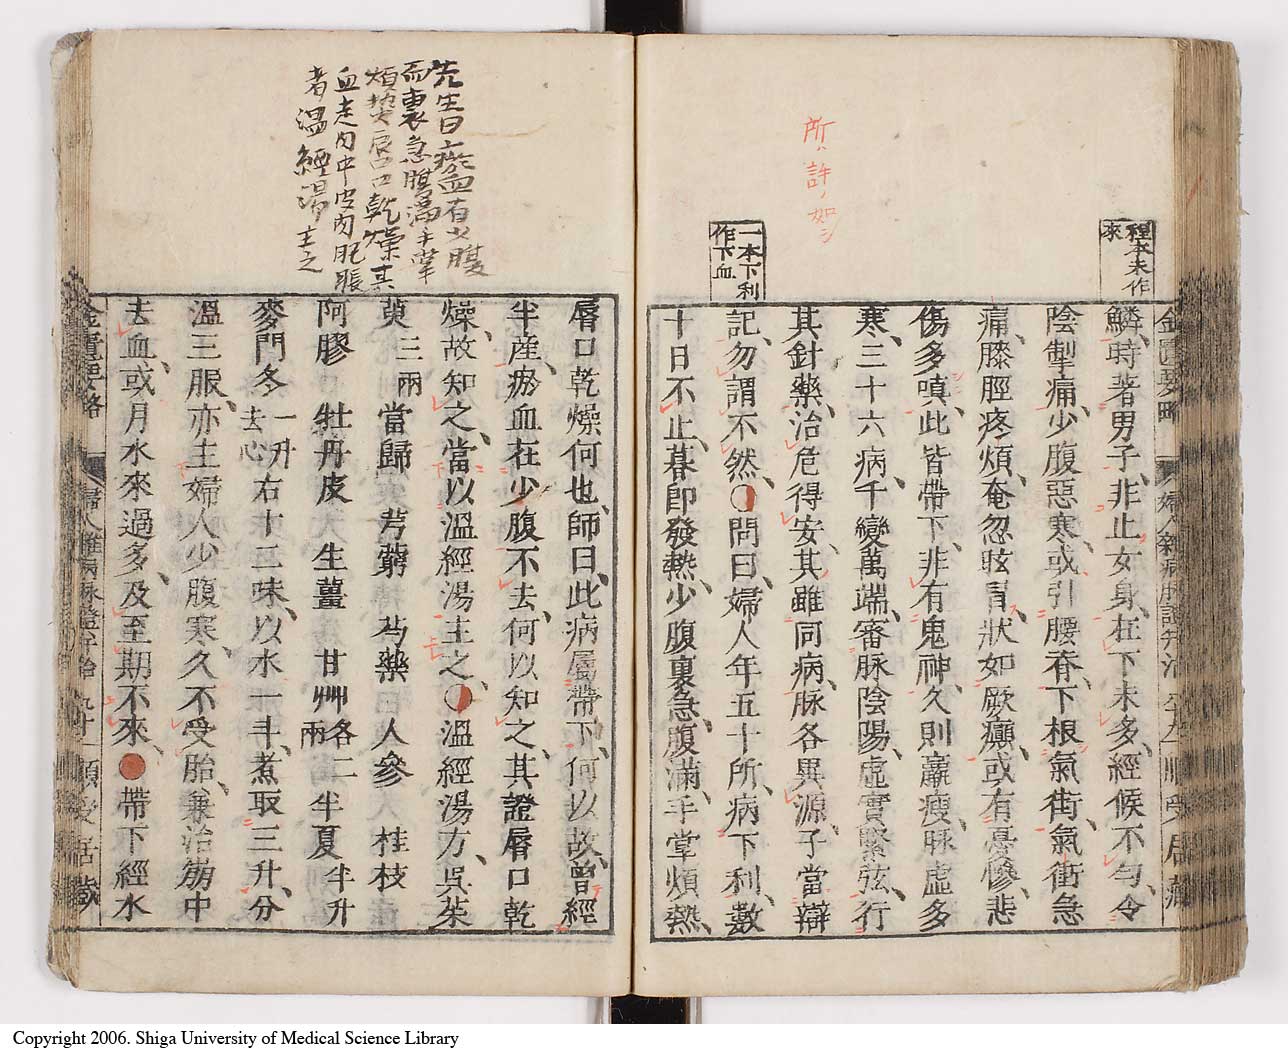 程本未作
來
一本下利
作下血
所ハ許ノ如シ
金匱要略
婦人雜病脉證并治
順受居藏
鱗、時著男子、非止女身、在下未多、經候不勻、令
陰掣痛、少腹惡寒、或引腰脊、下根氣街、氣衝急
痛、膝脛疼煩、奄忽眩冐、狀如厥癲、或有憂慘、悲
傷多嗔、此皆帶下、非有鬼神、久則羸瘦、脉虛多
寒、三十六病、千變萬端、審脉陰陽、虛實緊弦、行
其針藥、治危得安、其雖同病、脉各異源、子當辯
記、勿謂不然、問曰、婦人年五十所、病下利、數
十日不止、暮卽發熱、少腹裏急、腹滿、手掌煩熱、
先生曰瘀血有少腹
而裏急腹滿手掌
煩熱唇口乾燥其
血走肉中皮肉肥脹
者溫經湯主之
脣口乾燥何也、師曰、此病屬帶下、何以故、曾經
半産、瘀血在少腹不去、何以知之、其證脣口乾
燥、故知之、當以溫經湯主之、溫經湯方、吳茱
萸三兩 當歸 芎藭 芍藥 人參 桂枝
阿膠 牡丹皮 生薑 甘艸各二兩 半夏半升
麥門冬一升去心 右十二味、以水一斗、煮取三升、分
溫三服、亦主婦人少腹寒、久不受胎、兼治崩中
去血、或月水來過多、及至期不來、帶下經水
金匱要略
婦人雜病脉證并治 九十一 順受居藏
Copyright 2006. Shiga University of Medical Science Library